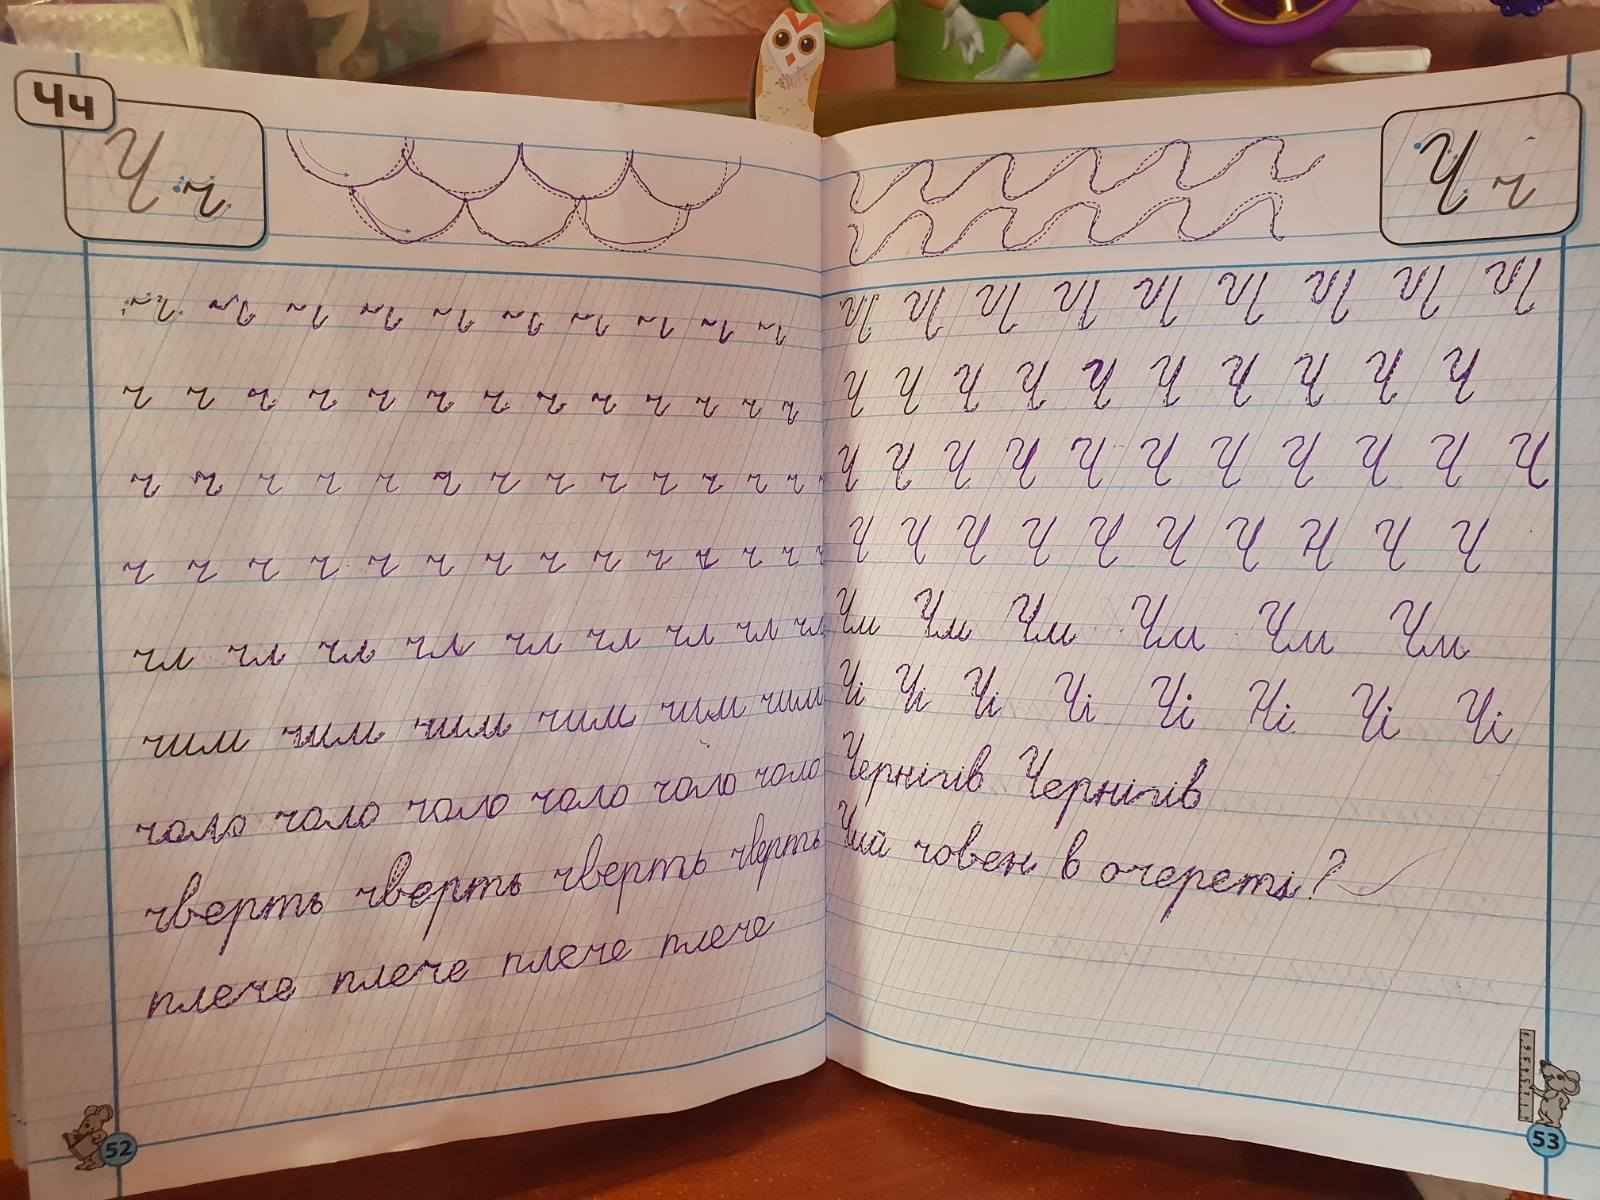 Чч
Ч ч
ч ч ч ч ч ч ч ч ч ч ч ч ч
ч ч ч ч ч ч ч ч ч ч ч ч ч
ч ч ч ч ч ч ч ч ч ч ч ч ч
чл чл чл чл чл чл чл чл чл
чим чим чим чим чим чим
чоло чоло чоло чоло чоло чоло
чверть чверть чверть чверть
плече плече плече плече
52
Ч ч
Ч Ч Ч Ч Ч Ч Ч Ч Ч Ч
Ч Ч Ч Ч Ч Ч Ч Ч Ч Ч Ч
Ч Ч Ч Ч Ч Ч Ч Ч Ч Ч
Чм Чм Чм Чм Чм Чм
Чі Чі Чі Чі Чі Чі Чі Чі
Чернігів Чернігів
Чий човен в очереті?
53